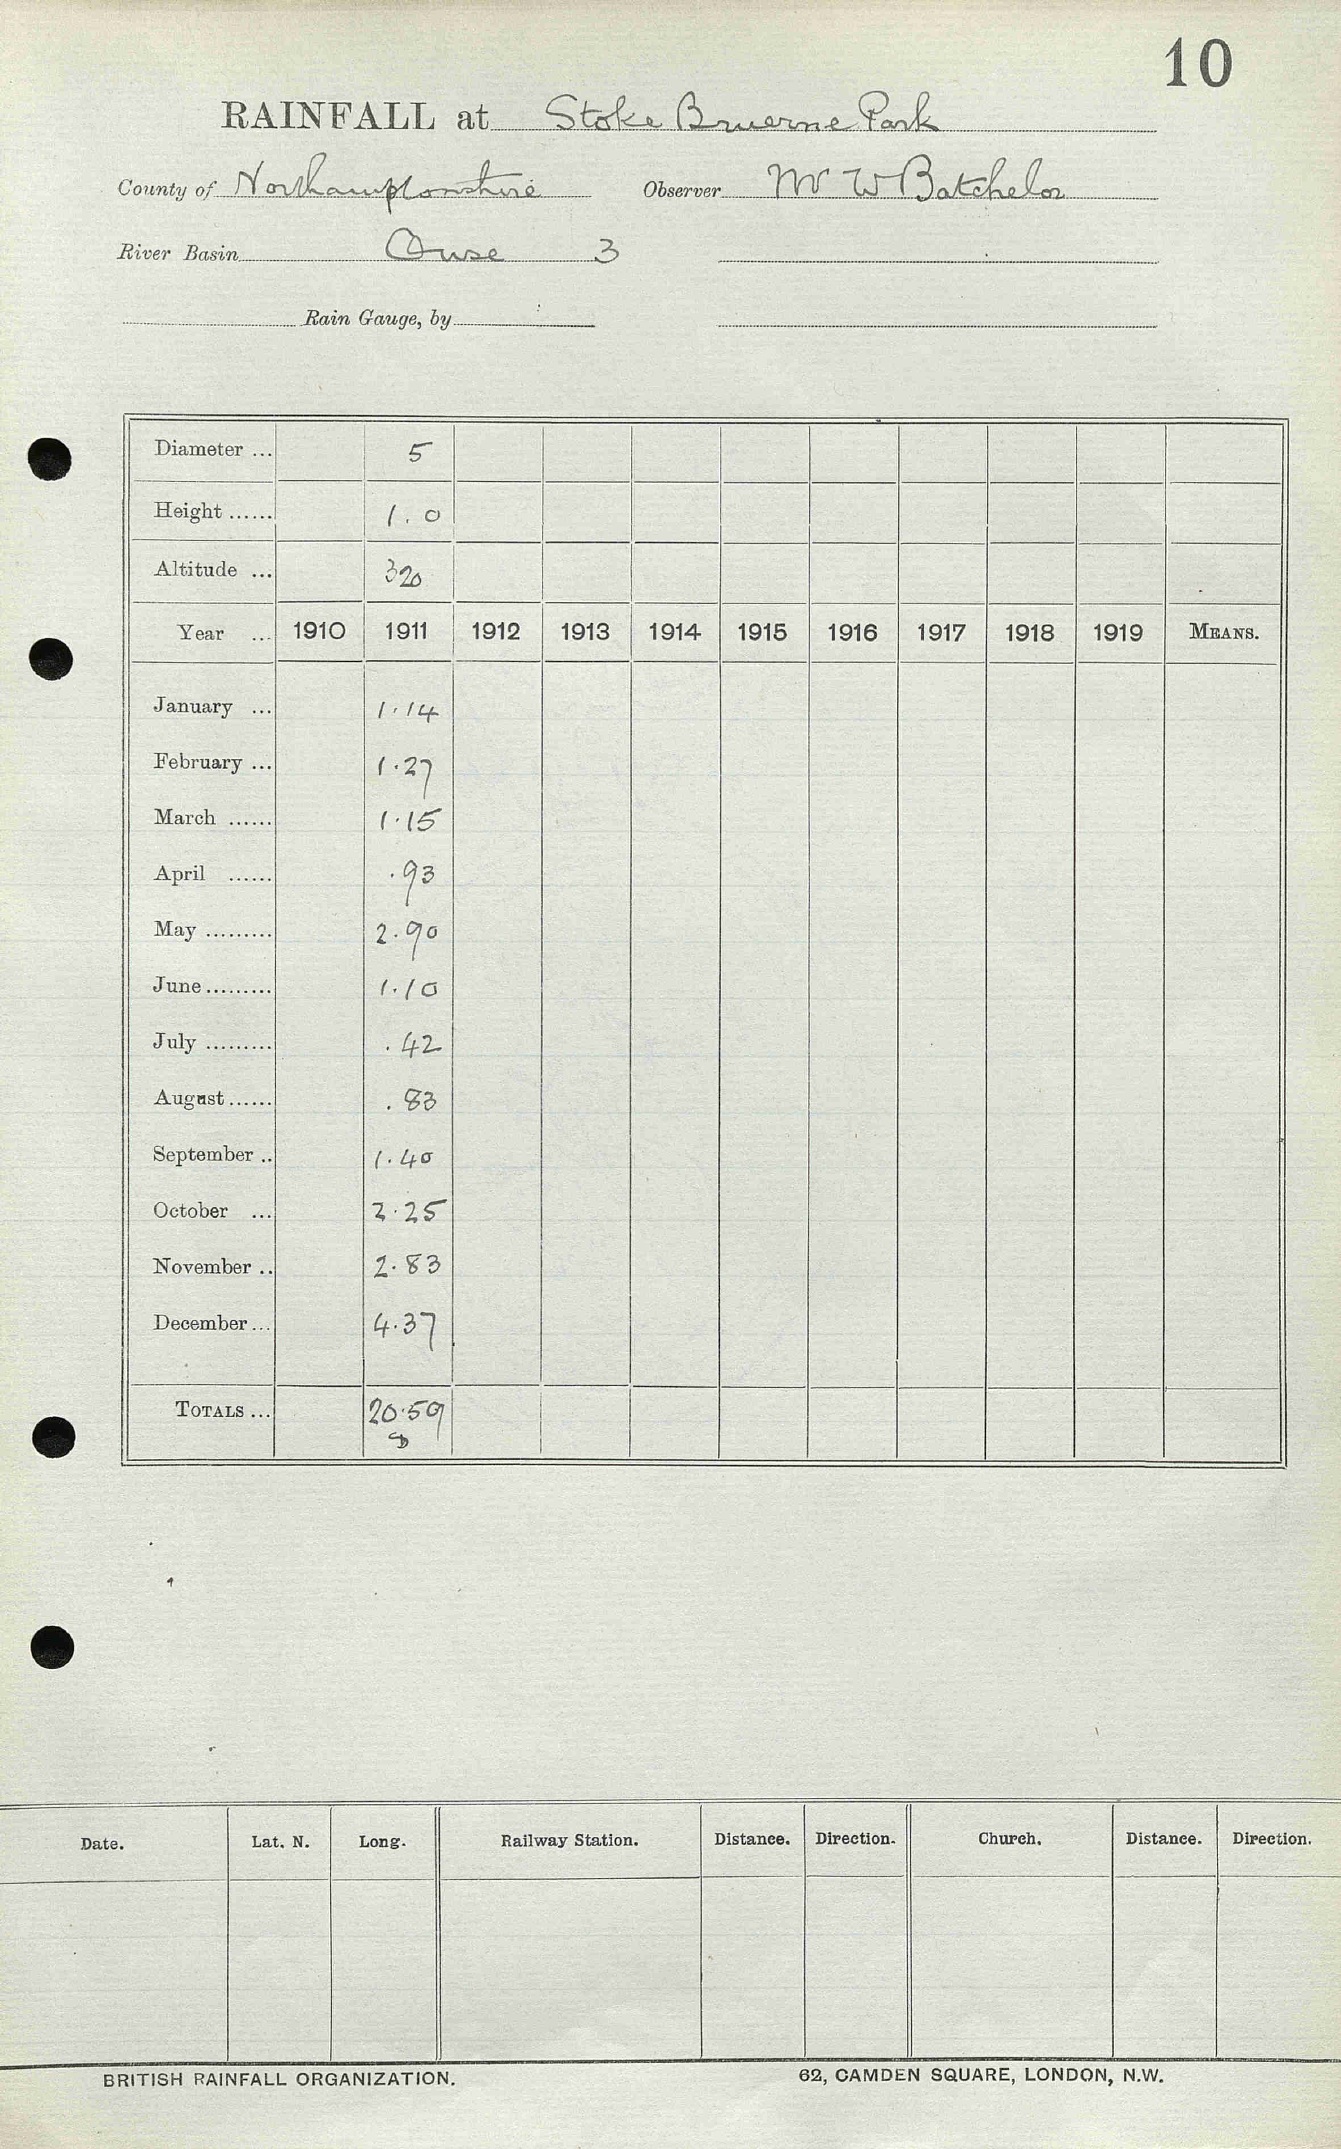 10
RAINFALL at Stoke Bruerne Park
County of Northamptonshire Observer Mr W Batchelor
River Basin Ouse 3
Rain Gauge, by
Diameter ... 5
Height ...... 1.0
Altitude ... 320
Year ... 1910 1911 1912 1913 1914 1915 1916 1917 1918 1919 MEANS.
January ... 1.14
February ... 1.27
March ...... 1.15
April ...... .93
May ......... 2.90
June ......... 1.10
July ......... .42
August ...... .83
September .. 1.40
October ... 2.25
November .. 2.83
December ... 4.37
TOTALS ... 20.59
Date. Lat. N. Long. Railway Station. Distance. Direction. Church. Distance. Direction.
BRITISH RAINFALL ORGANIZATION. 62, CAMDEN SQUARE, LONDON, N.W.